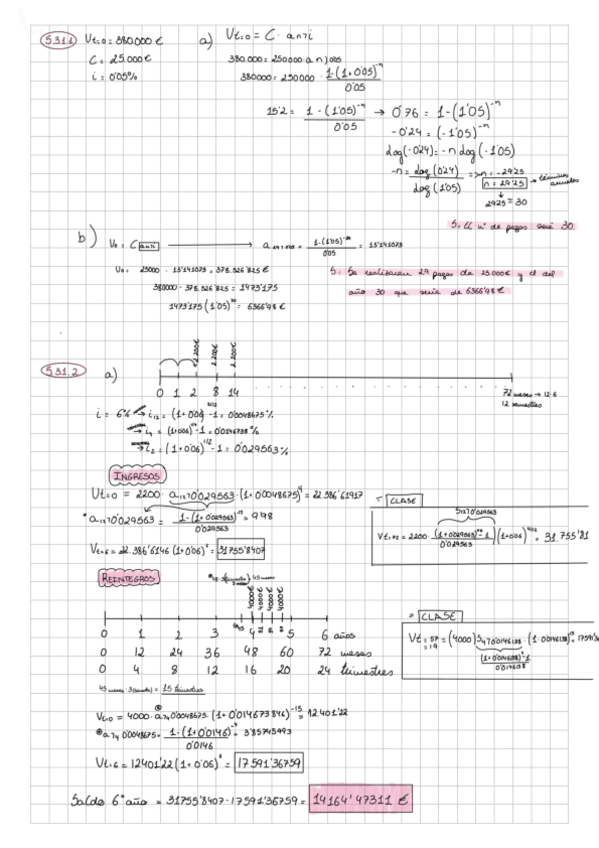 5.31.1 Vt=0 = 380.000 € a) Vt=0 = C · an¬i
C = 25.000 € 380.000 = 250000 · a n¬0'05
i = 0'05% 380000 = 250000 · 1-(1+0'05)^-n / 0'05
15'2 = 1-(1'05)^-n / 0'05 → 0'76 = 1-(1'05)^-n
-0'24 = (-1'05)^-n
log(-0'24) = -n log(-1'05)
-n = log(0'24) / log(1'05) => -n = -29'25
n = 29'25 → términos anuales
29'25 ≈ 30
S: El nº de pagos será 30
b) V0 = C an¬i → a 29¬0'05 = 1-(1'05)^-29 / 0'05 = 15'141073
V0 = 25000 · 15'141073 = 378.526'825 €
380000 - 378.526'825 = 1473'175
1473'175 (1'05)^30 = 6366'98 €
S: Se realizarán 29 pagos de 25.000€ y el del
año 30 que sería de 6366'98 €
5.31.2 a)
2.200€ 2.200€ 2.200€
0 1 2 8 14 72 meses → 12·6
12 semestres
i = 6% → i12 = (1+0'06)^1/12 - 1 = 0'0048675 %
→ i4 = (1+0'06)^1/4 - 1 = 0'0146738 %
→ i2 = (1+0'06)^1/2 - 1 = 0'029563 %
INGRESOS
Vt=0 = 2200 · a12¬0'029563 · (1+0'0048675)^4 = 22.386'61917
* a12¬0'029563 = 1-(1+0'029563)^-12 / 0'029563 = 9'98
Vt=6 = 22.386'6146 (1+0'06)^6 = 31755'8407
= CLASE
S12¬0'029563
Vt=72 = 2200 · (1+0'029563)^12 - 1 / 0'029563 (1+0'06)^4/12 = 31.755'81
REINTEGROS
45 meses
4000€ 4000€ 4000€ 4000€
0 1 2 3 4 5 6 años
0 12 24 36 48 60 72 meses
0 4 8 12 16 20 24 trimestres
45 meses : 3 = 15 trimestres
= CLASE
Vt=57=19 = (4000) S4¬0'0146738 · (1'0146738)^5 = 17591'36
(1+0'0146738)^4 - 1 / 0'0146738
Vt=0 = 4000 · a 4¬0'0048675 · (1+0'014673846)^-15 = 12.401'22
a 4¬0'0048675 = 1-(1+0'0146)^-4 / 0'0146 = 3'85745493
Vt=6 = 12401'22 (1+0'06)^6 = 17591'36759
Saldo 6º año = 31755'8407 - 17591'36759 = 14164'47311 €